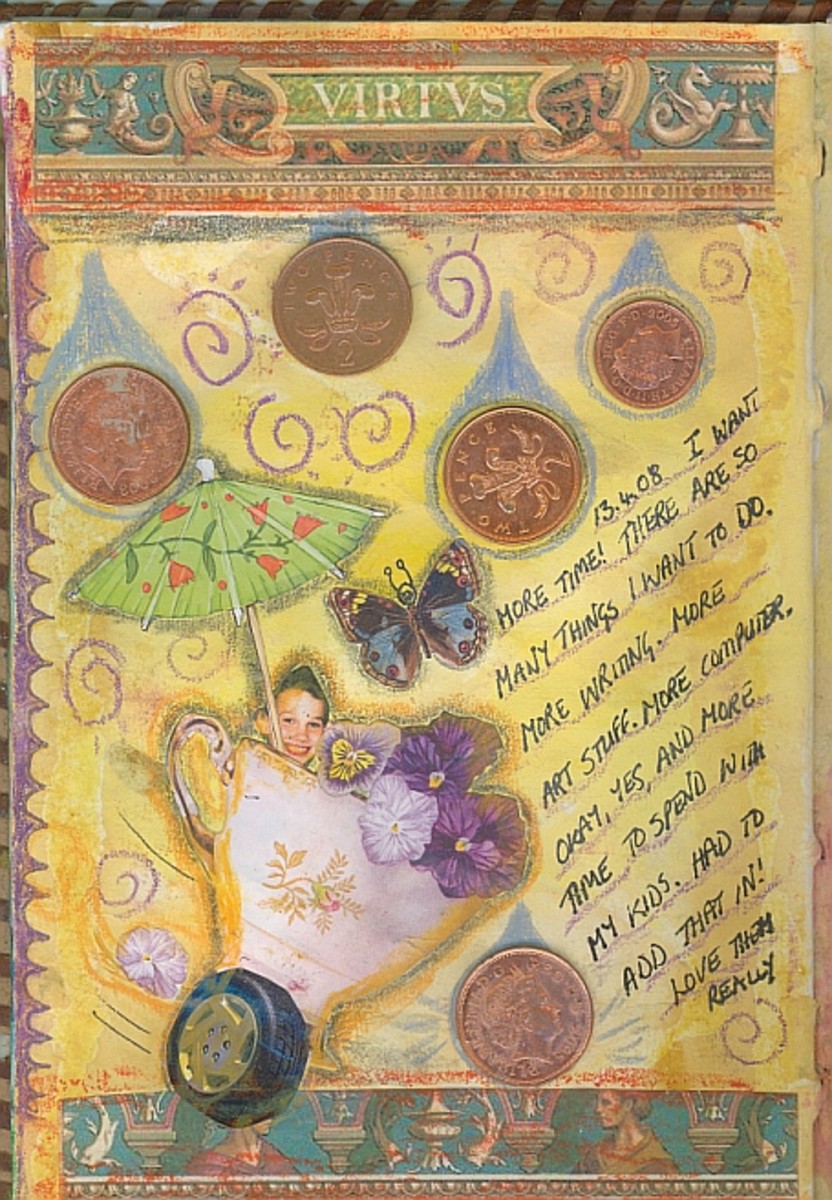 VIRTVS
TWO PENCE
2
TWO PENCE
2
13.4.08 I WANT
MORE TIME! THERE ARE SO
MANY THINGS I WANT TO DO.
MORE WRITING. MORE
ART STUFF. MORE COMPUTER.
OKAY, YES, AND MORE
TIME TO SPEND WITH
MY KIDS. HAD TO
ADD THAT IN!
LOVE THEM
REALLY